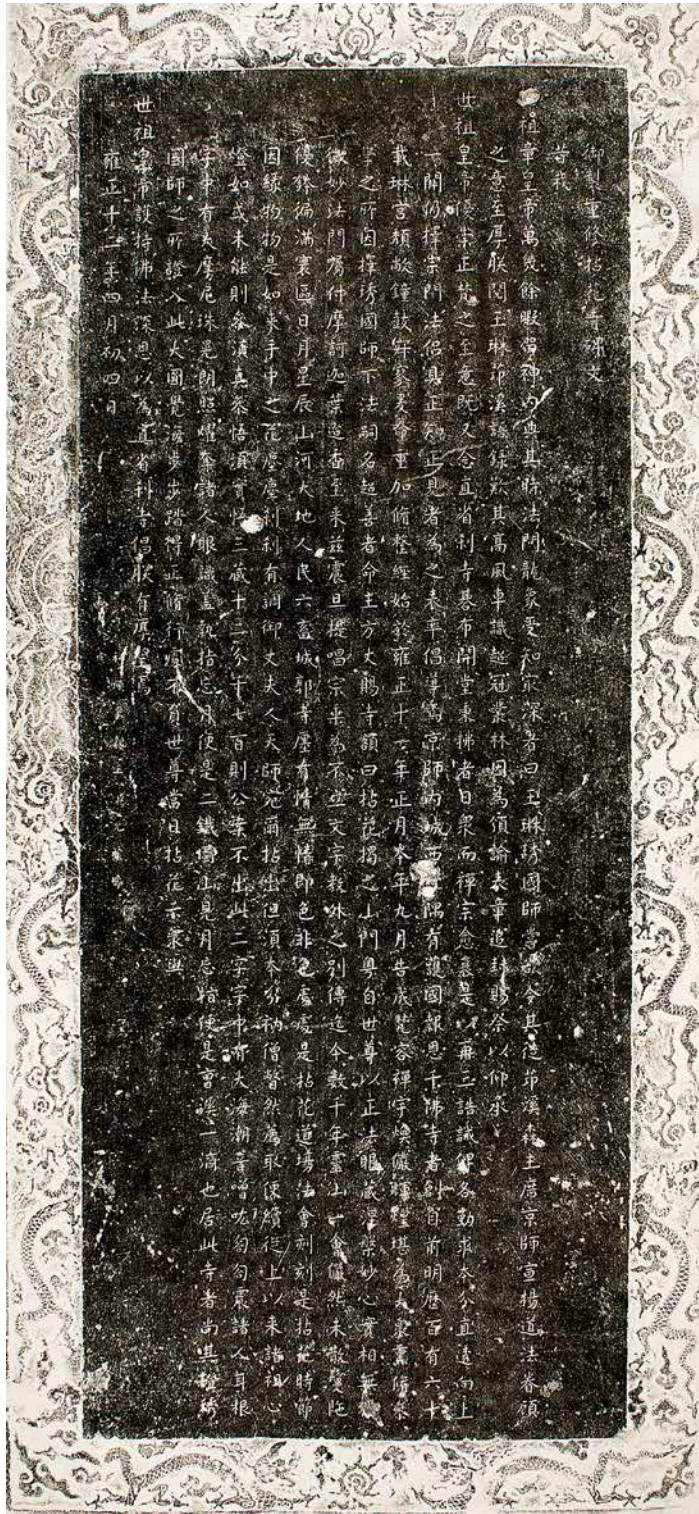 御製重修拈花寺碑文
昔我
世祖章皇帝萬幾餘暇留神內典其時法門龍象受知最深者曰玉琳琇國師嘗敕令其徒茆溪森主席京師宣揚道法眷顧
之意至厚朕閱玉琳茆溪語錄歎其高風卓識超冠叢林因為頒諭表章追封賜祭以仰承
世祖皇帝優崇正梵之至意既又念直省剎寺碁布開堂秉拂者日衆而禪宗愈衰是以再三誥誡俾各勤求本分直透向上
一關仍擇宗門法侶具正知正見者為之表率倡導焉京師內城西隅有護國報恩千佛寺者創自前明歷百有六十
載琳宮頹敝鐘鼓寂寥爰命重加修整經始於雍正十一年正月本年九月告成梵容禪宇煥儼輝煌堪為大衆薰修參
學之所因擇琇國師下法嗣名超善者命主方丈賜寺額曰拈花揭之山門粵自世尊以正法眼藏涅槃妙心實相無
微妙法門屬付摩訶迦葉迨香至來茲震旦提唱宗乘為不立文字教外之別傳迄今數千年靈山一會儼然未散
徧滿寰區日月星辰山河大地人民六畜城郭幸廛有情無情即色非色處處是拈花道場法會刻刻是拈花時節
因緣物物是如來手中之花塵塵剎剎有調御丈夫人天師宛爾拈出但須本分衲僧瞥然薦取便續從上以來諸祖心
燈如或未能則參須真參悟須實悟三藏十二分千七百則公案不出此二字字中有大海潮音噌吰匌匌震諸人耳根
字中有大摩尼珠晃朗照耀奪諸人眼識蓋執指忘月便是二鐵圍山見月忘指便是曹溪一滴也居此寺者尚其證琇
國師之所證入此大圓覺海步步踏得正脩行路不負世尊當日拈花示衆與
世祖皇帝護持佛法深恩以為直省剎寺倡朕有厚望焉
雍正十二年四月初四日